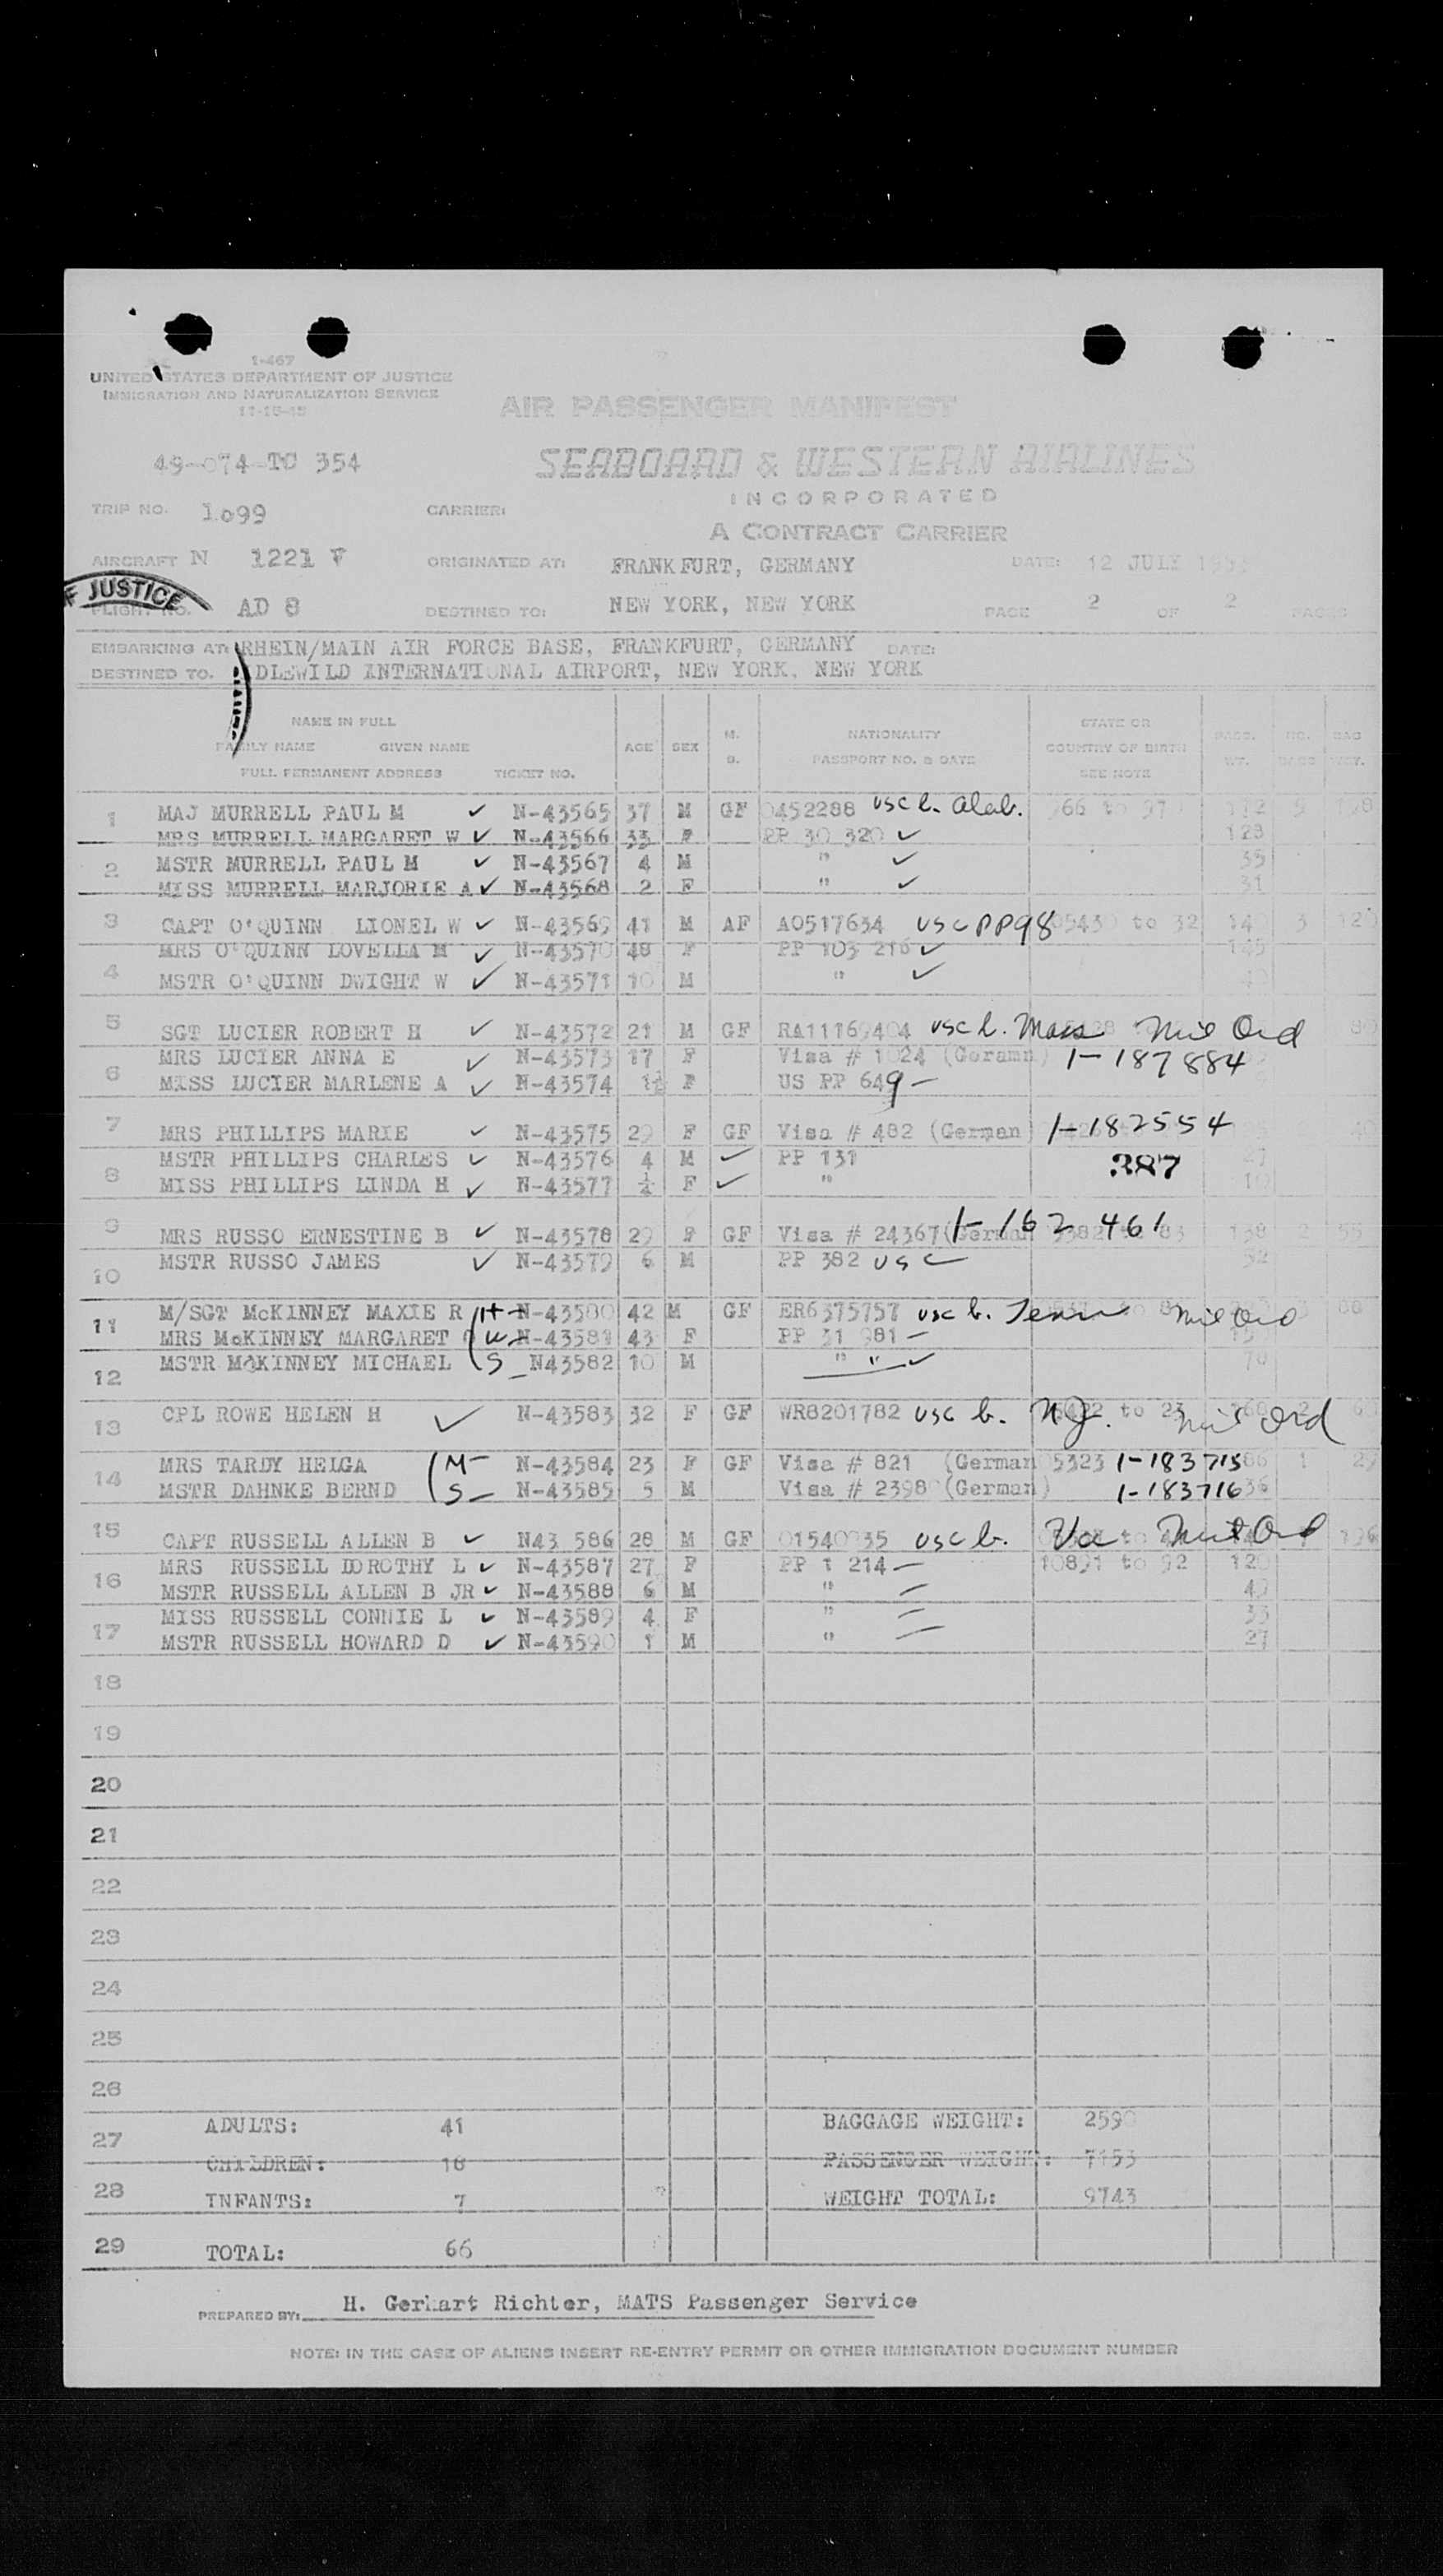 1-467
UNITED STATES DEPARTMENT OF JUSTICE
IMMIGRATION AND NATURALIZATION SERVICE
11-15-45
AIR PASSENGER MANIFEST
49-074-TC 354
SEABOARD & WESTERN AIRLINES
INCORPORATED
TRIP NO. 1099 CARRIER:
A CONTRACT CARRIER
AIRCRAFT N 1221 V ORIGINATED AT: FRANKFURT, GERMANY DATE: 12 JULY
JUSTICE
FLIGHT NO. AD 8 DESTINED TO: NEW YORK, NEW YORK PAGE 2 OF 2 PAGES
EMBARKING AT: RHEIN/MAIN AIR FORCE BASE, FRANKFURT, GERMANY DATE:
DESTINED TO. DLEWILD INTERNATIONAL AIRPORT, NEW YORK, NEW YORK
NAME IN FULL
FAMILY NAME GIVEN NAME
FULL PERMANENT ADDRESS TICKET NO.
AGE SEX
NATIONALITY
PASSPORT NO. & DATE
STATE OR
COUNTRY OF BIRTH
SEE NOTE
PASS. WT.
1 MAJ MURRELL PAUL M ✓ N-43565 37 M GF 0452288 usc b. Alab. 966 to 97 172 9
MRS MURRELL MARGARET W ✓ N-43566 33 F PP 30 320 ✓ 128
2 MSTR MURRELL PAUL M ✓ N-43567 4 M " ✓ 35
MISS MURRELL MARJORIE A ✓ N-43568 2 F " ✓ 31
3 CAPT O'QUINN LIONEL W ✓ N-43569 41 M AF AO517634 usc PP98 05430 to 32 140 3 120
MRS O'QUINN LOVELLA M ✓ N-43570 48 F PP 103 216 ✓ 145
4 MSTR O'QUINN DWIGHT W ✓ N-43571 10 M " ✓
5 SGT LUCIER ROBERT H ✓ N-43572 21 M GF RA11169404 usc b. Mass Mil Ord 80
MRS LUCIER ANNA E ✓ N-43573 17 F Visa # 1024 (Geramn) 1-187884
6 MISS LUCIER MARLENE A ✓ N-43574 1½ F US PP 649 -
7 MRS PHILLIPS MARIE ✓ N-43575 29 F GF Visa # 482 (German 1-182554
MSTR PHILLIPS CHARLES ✓ N-43576 4 M ✓ PP 131 387 27
8 MISS PHILLIPS LINDA H ✓ N-43577 F ✓ " 10
9 MRS RUSSO ERNESTINE B ✓ N-43578 29 F GF Visa # 24367 (German 1-162 461 138 2 55
10 MSTR RUSSO JAMES ✓ N-43579 6 M PP 382 usc 52
11 M/SGT McKINNEY MAXIE R H + N-43580 42 M GF ER6375757 usc b. Tenn Mil Ord
MRS McKINNEY MARGARET W N-43581 43 F PP 31 981 -
12 MSTR McKINNEY MICHAEL S - N43582 10 M " " ✓ 70
13 CPL ROWE HELEN H ✓ N-43583 32 F GF WR8201782 usc b. NJ. to 23 2 Mil Ord
14 MRS TARDY HELGA M - N-43584 23 F GF Visa # 821 (German 05323 1-183715 1
MSTR DAHNKE BERND S - N-43585 5 M Visa # 2398 (German) 1-183716 36
15 CAPT RUSSELL ALLEN B ✓ N43 586 28 M GF usc b. Va Mil Ord 196
MRS RUSSELL DOROTHY L ✓ N-43587 27 F PP 1 214 - 10891 to 92 120
16 MSTR RUSSELL ALLEN B JR ✓ N-43588 6 M " - 49
MISS RUSSELL CONNIE L ✓ N-43589 4 F " - 33
17 MSTR RUSSELL HOWARD D ✓ N-43590 1 M " - 27
18
19
20
21
22
23
24
25
26
27 ADULTS: 41 BAGGAGE WEIGHT: 2590
CHILDREN: 18 PASSENGER WEIGHT: 7153
28 INFANTS: 7 WEIGHT TOTAL: 9743
29 TOTAL: 66
PREPARED BY: H. Gerhart Richter, MATS Passenger Service
NOTE: IN THE CASE OF ALIENS INSERT RE-ENTRY PERMIT OR OTHER IMMIGRATION DOCUMENT NUMBER